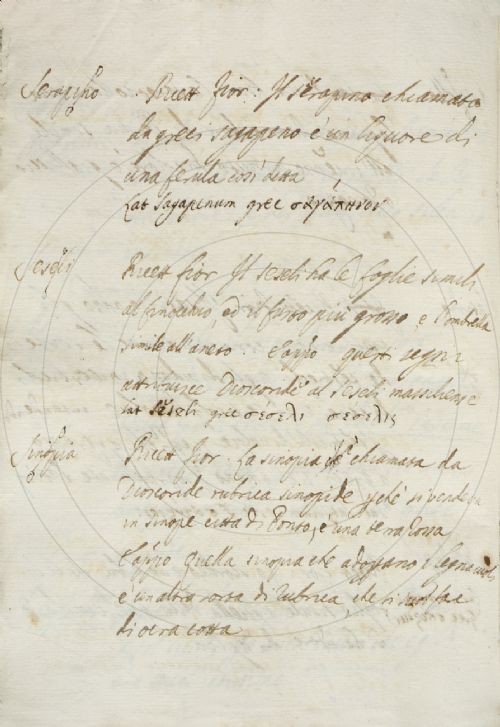 Serapino Ricett. fior. Il serapino chiamato
da greci sagapeno è un liquore di
una ferula così detta
Lat Sagapenum grec σαγάπηνον
Seseli Ricett fior. Il seseli ha le foglie simili
al finocchio, ed il fusto più grosso, e l'ombrella
simile all'aneto. E appo questi segni
attribuisce Dioscoride al seseli massiliense
Lat Seseli grec σεσελι σεσελις
Sinopia Ricett fior. La sinopia è chiamata da
Dioscoride rubrica sinopide, pche si vendeva
in sinope città di Ponto, è una terra rossa
E appo quella sinopia che adoprano i legnaiuoli
è un'altra sorta di rubrica, che si fa
di ocra cotta